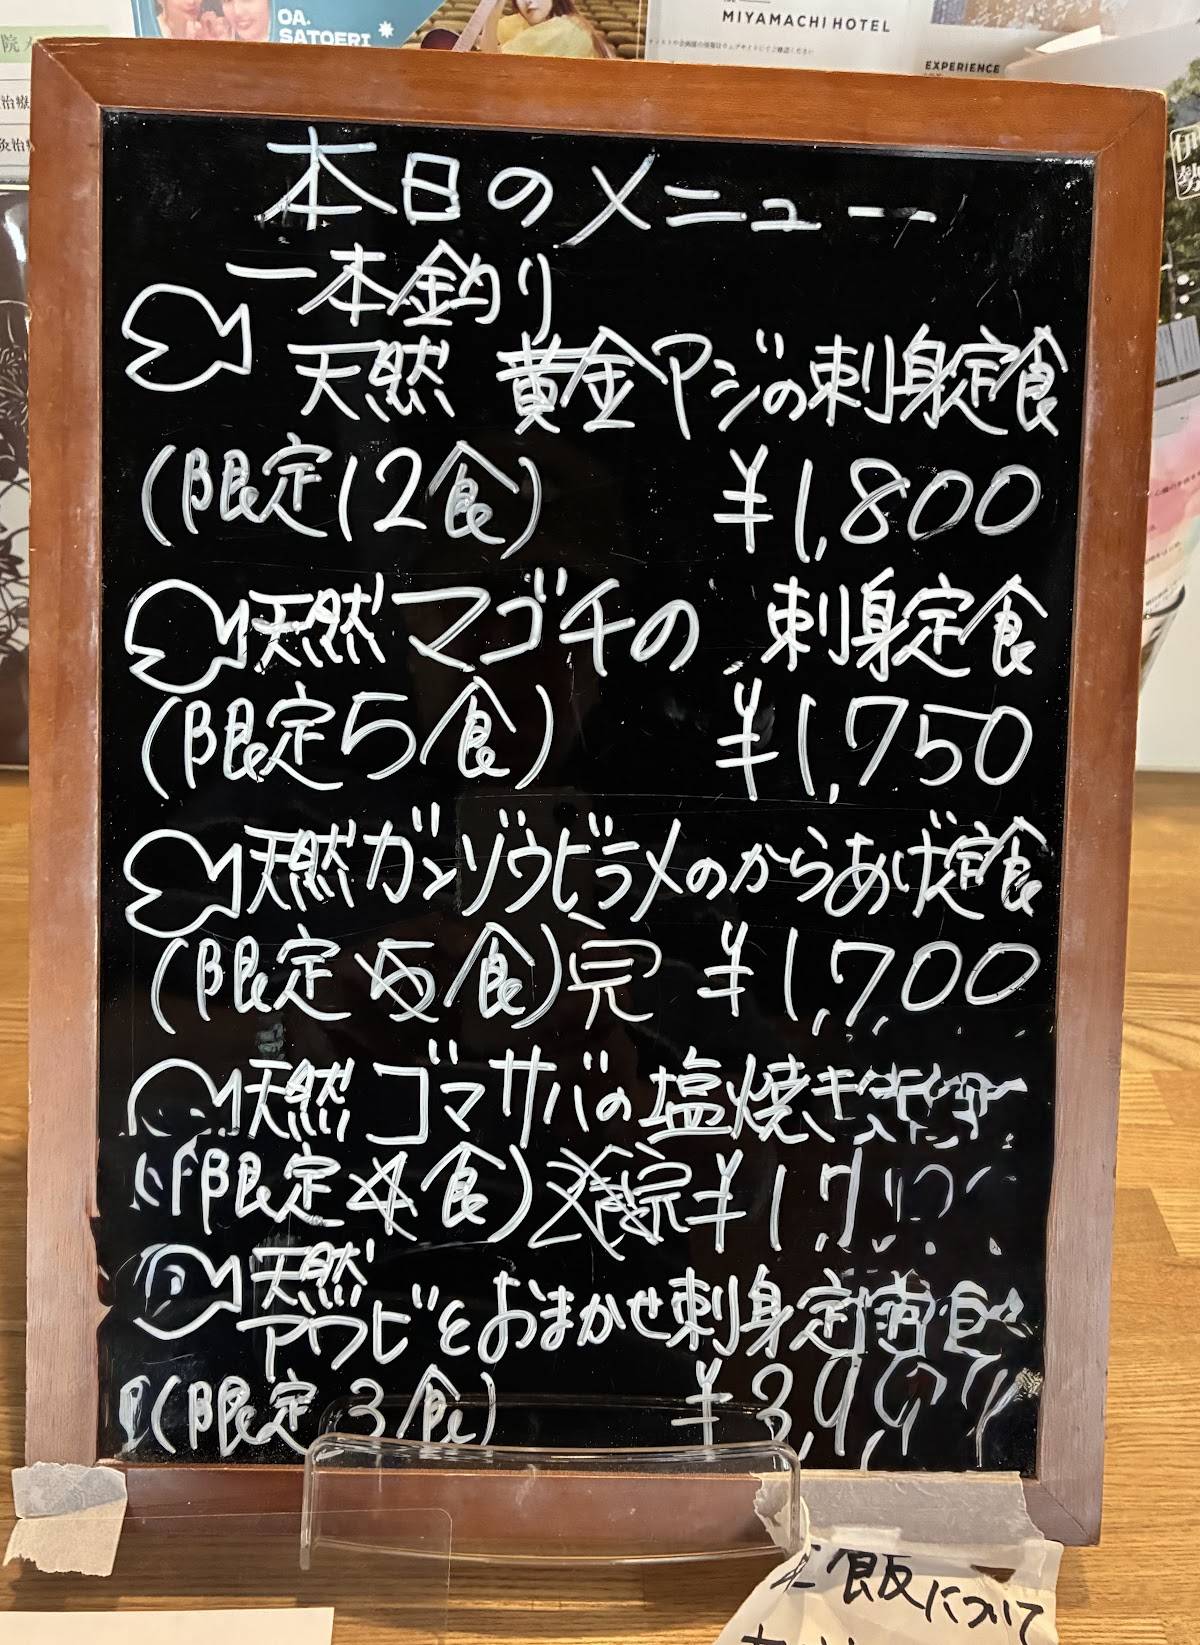 OA.
SATOERI
MIYAMACHI HOTEL
EXPERIENCE
伊勢
本日のメニュー
一本釣り
天然 黄金アジの刺身定食
(限定12食) ¥1,800
天然マゴチの 刺身定食
(限定5食) ¥1,750
天然ガンゾウビラメのからあげ定食
(限定 食)完 ¥1,700
天然 ゴマサバの塩焼き
(限定 食) 完 ¥1,7
天然
アワビとおまかせ刺身定食
(限定3食) ¥3,9
ご飯について